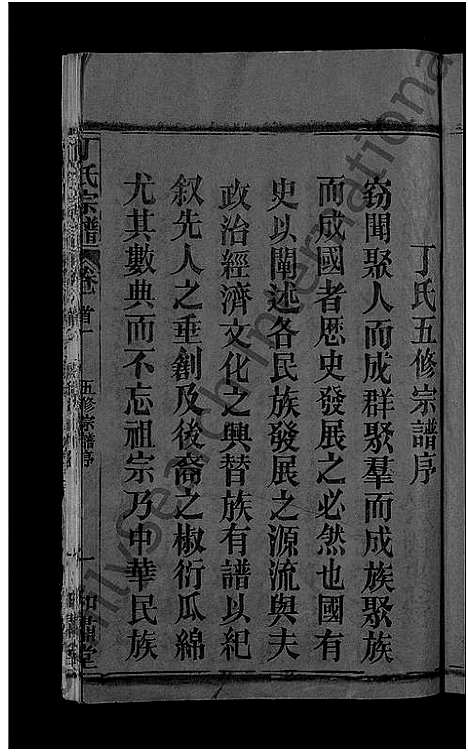 丁氏五修宗譜序
竊聞聚人而成群聚羣而成族聚族
而成國者歷史發展之必然也國有
史以闡述各民族發展之源流與夫
政治經濟文化之興替族有譜以紀
叙先人之垂創及後裔之椒衍瓜綿
尤其數典而不忘祖宗乃中華民族
丁氏宗譜 卷首 五修宗譜序 一